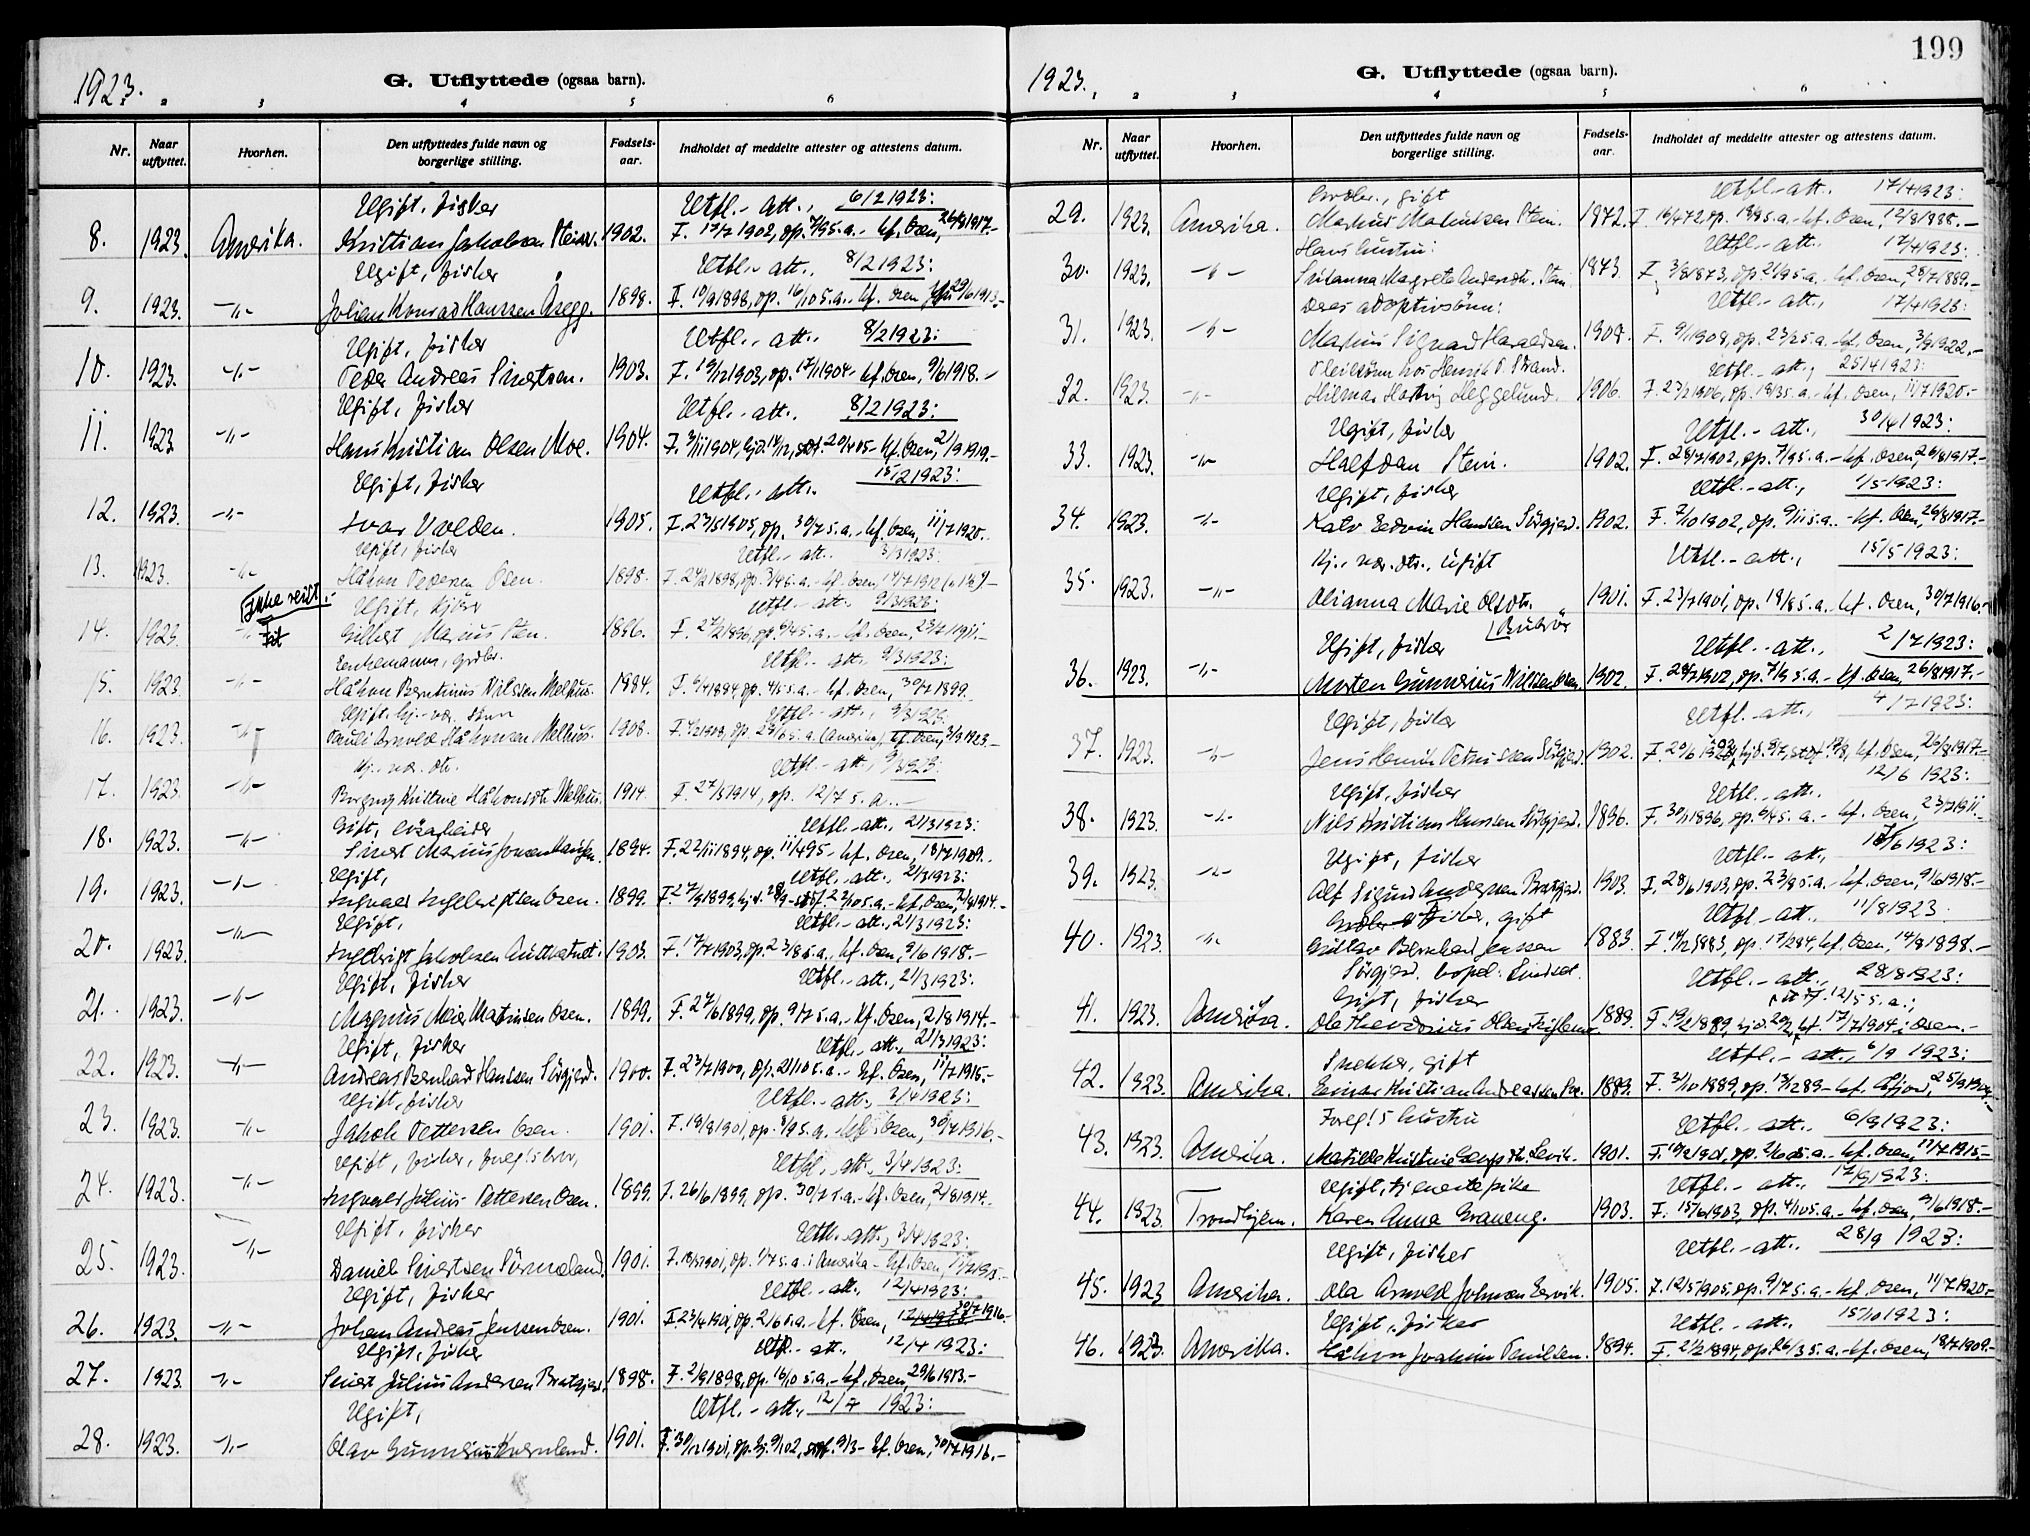 1923. G. Utflyttede (ogsaa barn).
1 2 3 4 5 6
Nr. Naar utflyttet. Hvorhen. Den utflyttedes fulde navn og borgerlige stilling. Fødsels-aar. Indholdet af meddelte attester og attestens datum.
Ugift, fisker Utfl.- att., 6/2 1923:
8. 1923. Amerika. Kristian Jakobsen 1902. op. 7/9 s.a.- kf. Osen, 26/8 1917.-
Ugift, fisker Utfl.- att., 8/2 1923:
9. 1923. -"- Johan Konrad Hanssen Åsegg. 1898. F. 10/9 1898, op. 16/10 s.a.- kf. Osen, 29/6 1913.-
Ugift, fisker Utfl.- att. 8/2 1923:
10. 1923. -"- Peder Andreas Sivertsen. 1903. F. 19/12 1903, op. 17/1 1904- kf. Osen, 9/6 1918.-
Ugift, fisker Utfl.- att.. 8/2 1923:
11. 1923 -"- Hans Kristian Olsen Moe. 1904. F. 3/11 1904, hjd. 14/12, stadf. 20/4 05- kf. Osen, 2/9 1919.-
Ugift, fisker Utfl.- att.. 15/2 1923:
12. 1923. -"- Ivar Vælden. 1905. F. 23/5 1905, op. 30/7 s.a.- kf. Osen, 11/7 1920.
Ugift, fisker Utfl.- att. 3/3 1923:
13. 1923. -"- Håkon Pedersen Osen. 1898.
Ikke reist.-
Ugift, Utfl.- att. 9/3 1923:
14. 1923. -"- Gilbert Marius Sten. 1896. F. 27/2 1896, op. 6/4 s.a.- kf. Osen, 23/7 1911.-
Enkemann, grdbr. Utfl.- att., 9/3 1923:
15. 1923 -"- Håkon Berntinus Nilssen Melhus. 1884. kf. Osen, 30/7 1899.
Ugift, hj.- vær. sønn Utfl.- att.,
16. 1923 -"- Arnold Håkonsen Melhus. 1908. (Amerika), kf. Osen, 3/9 1922.-
Hj.- vær. dtr. Utfl.- att., 9/3 1923:
17. 1923 -"- Borgny Kristine Håkonsdtr. Melhus. 1914. F. 27/3 1914, op. 12/7 s.a..-
Gift, løsarbeider Utfl.- att., 21/3 1923:
18. 1923. -"- Sivert Marius Jensen Hansen. 1894. F. 22/11 1894, op. 1/4 95- kf. Osen, 18/7 1909..
Ugift, Utfl.- att., 21/3 1923:
19. 1923. -"- Ingvald Ingebrigtsen Osen. 1899. kf. Osen, 2/8 1914.-
Ugift, Utfl.- att., 21/3 1923:
20. 1923. -"- Ingebrigt Jakobsen Aunvatnet. 1903. F. 17/7 1903, op. 23/8 s.a., kf. Osen, 9/6 1918.-
Ugift, fisker Utfl.- att., 21/3 1923:
21. 1923. -"- Magnus Meier Martinsen Osen. 1899. F. 27/6 1899, op. 9/7 s.a.- kf. Osen, 2/8 1914.-
Ugift, fisker Utfl.- att., 21/3 1923:
22. 1923. -"- Andreas Bernhard Hanssen Sørgjerd. 1900. F. 23/7 1900, op. 21/10 s.a.- kf. Osen, 11/7 1915.-
Ugift, fisker Utfl.- att., 3/4 1923:
23. 1923. -"- Jakob Pettersen Osen. 1901. F. 18/8 1901, op. 8/9 s.a. kf. Osen, 30/7 1916.-
Ugift, fisker, foreg's bror, Utfl.- att., 3/4 1923:
24. 1923. -"- Ingvald Julius Pettersen Osen. 1899. F. 26/6 1899, op. 30/7 s.a.- kf. Osen, 2/8 1914.-
Ugift, fisker Utfl.- att., 3/4 1923:
25. 1923. -"- Daniel Sivertsen Sørmeland. 1901. op. 1/4 s.a. i Amerika - kf. Osen,
Ugift, fisker Utfl.- att. 12/4 1923:
26. 1923. -"- Johan Andreas Jenssen Osen. 1901. F. 23/4 1901, op. 2/6 s.a.- kf. Osen, 30/7 1916.-
Ugift, fisker Utfl.- att. 12/4 1923:
27. 1923. -"- Sivert Julius Andersen Bratgjerd. 1898. F. 2/9 1898, op. 16/10 s.a.- kf. Osen, 29/6 1913.-
Ugift, Utfl.- att., 12/4 1923:
28. 1923. -"- Olav Gunnerius Kvernland. 1901. kf. Osen, 30/7 1916.-
199
1923. G. Utflyttede (ogsaa barn).
1 2 3 4 5 6
Nr. Naar utflyttet. Hvorhen. Den utflyttedes fulde navn og borgerlige stilling. Fødsels-aar. Indholdet af meddelte attester og attestens datum.
Grdbr., gift Utfl.- att. 17/4 1923:
29. 1923. Amerika. Markus Martinsen Stein. 1872. kf. Osen, 12/8 1888.-
Hans hustru: Utfl.- att. 17/4 1923:
30. 1923. -"- Susanna Magrete Andersdtr. Stein 1873. F. 3/8 1873, op. 21/9 s.a.- kf. Osen, 28/7 1889.-
Deres adoptivsønn: Utfl.- att., 17/4 1923:
31. 1923. -"- Marius Sigvard Haraldsen. 1908. F. 9/1 1908, op. 23/2 s.a.- kf. Osen, 3/9 1922.-
Pleiesønn hos Henrik P. Strand. Utfl.- att., 25/4 1923:
32. 1923. -"- Hilmar Hartvig Heggelund. 1906. F. 23/2 1906, op. 18/3 s.a.- kf. Osen, 11/7 1920.-
Ugift, fisker Utfl.- att., 30/4 1923:
33. 1923. -"- Halfdan Stein. 1902. F. 28/7 1902, op. 7/9 s.a.- kf. Osen, 26/8 1917.-
Ugift, fisker Utfl.- att., 1/5 1923:
34. 1923. -"- Edvin Hanssen Sørgjerd. 1902. F. 7/10 1902, op. 9/11 s.a.- kf. Osen, 26/8 1917.-
Hj.- vær. dtr., ugift Utfl.- att., 15/5 1923:
35. 1923. -"- Olianna Marie Olsdtr. 1901. F. 23/7 1901, op. 18/8 s.a. kf. Osen, 30/7 1916.-
Ugift, fisker Utfl.- att.. 2/7 1923:
36. 1923. -"- Morten Gunnerius Nilssen Osen. 1902. F. 28/7 1902, op. 7/9 s.a.- kf. Osen, 26/8 1917.-
Ugift, fisker Utfl.- att., 4/7 1923:
37. 1923. -"- Jens Henrik Petrussen Sørgjerd. 1902. kf. Osen, 26/8 1917.-
Ugift, fisker Utfl.- att. 12/6 1923:
38. 1923. -"- Nils Kristian Hanssen Sørgjerd. 1896. F. 30/1 1896, op. 6/4 s.a.- kf. Osen, 23/7 1911.
Ugift, fisker Utfl.- att.,
39. 1923. -"- Alf Sigurd Andersen Bratgjerd. 1903. F. 28/6 1903, op. 23/8 s.a.- kf. Osen, 9/6 1918.-
Fisker, gift Utfl.- att.. 11/8 1923.
40. 1923. -"- Gustav Bernhard Jenssen 1883. kf. Osen, 14/8 1898.-
Sørgjerd. bopel: Utfl.- att., 28/8 1923:
Gift, fisker stadf. 12/5 s.a.;
41. 1923. Amerika. Ole Theodorius Olsen 1889. F. 19/2 1889, hjd. 20/2, kf. 17/7 1904 i Osen.-
Snekker, gift Utfl.- att., 6/9 1923:
42. 1923. Amerika. Einar Kristian Andreassen 1889. F. 31/10 1889, op. 13/12 89-
Foreg's hustru Utfl.- att.. 6/9 1923:
43. 1923. Amerika. Matilde Kristine 1901. kf. Osen, 11/7 1915-
Ugift, tjenestepike Utfl.- att. 17/9 1923:
44. 1923. Trondhjem. Karen Anna Graneng. 1903. F. 15/6 1903, op. 4/10 s.a.- kf. Osen, 9/6 1918.-
Ugift, fisker Utfl.- att.. 28/9 1923:
45. 1923 Amerika. Ola Arnold Johnsen Ervik. 1905. F. 12/5 1905, op. 9/7 s.a.- kf. Osen, 11/7 1920.-
Ugift, fisker Utfl.- att. 15/10 1923:
46. 1923. Amerika. Håkon Joakim Paulsen. 1894. F. 2/2 1894, op. 26/3 s.a.- kf. Osen, 18/7 1909.-